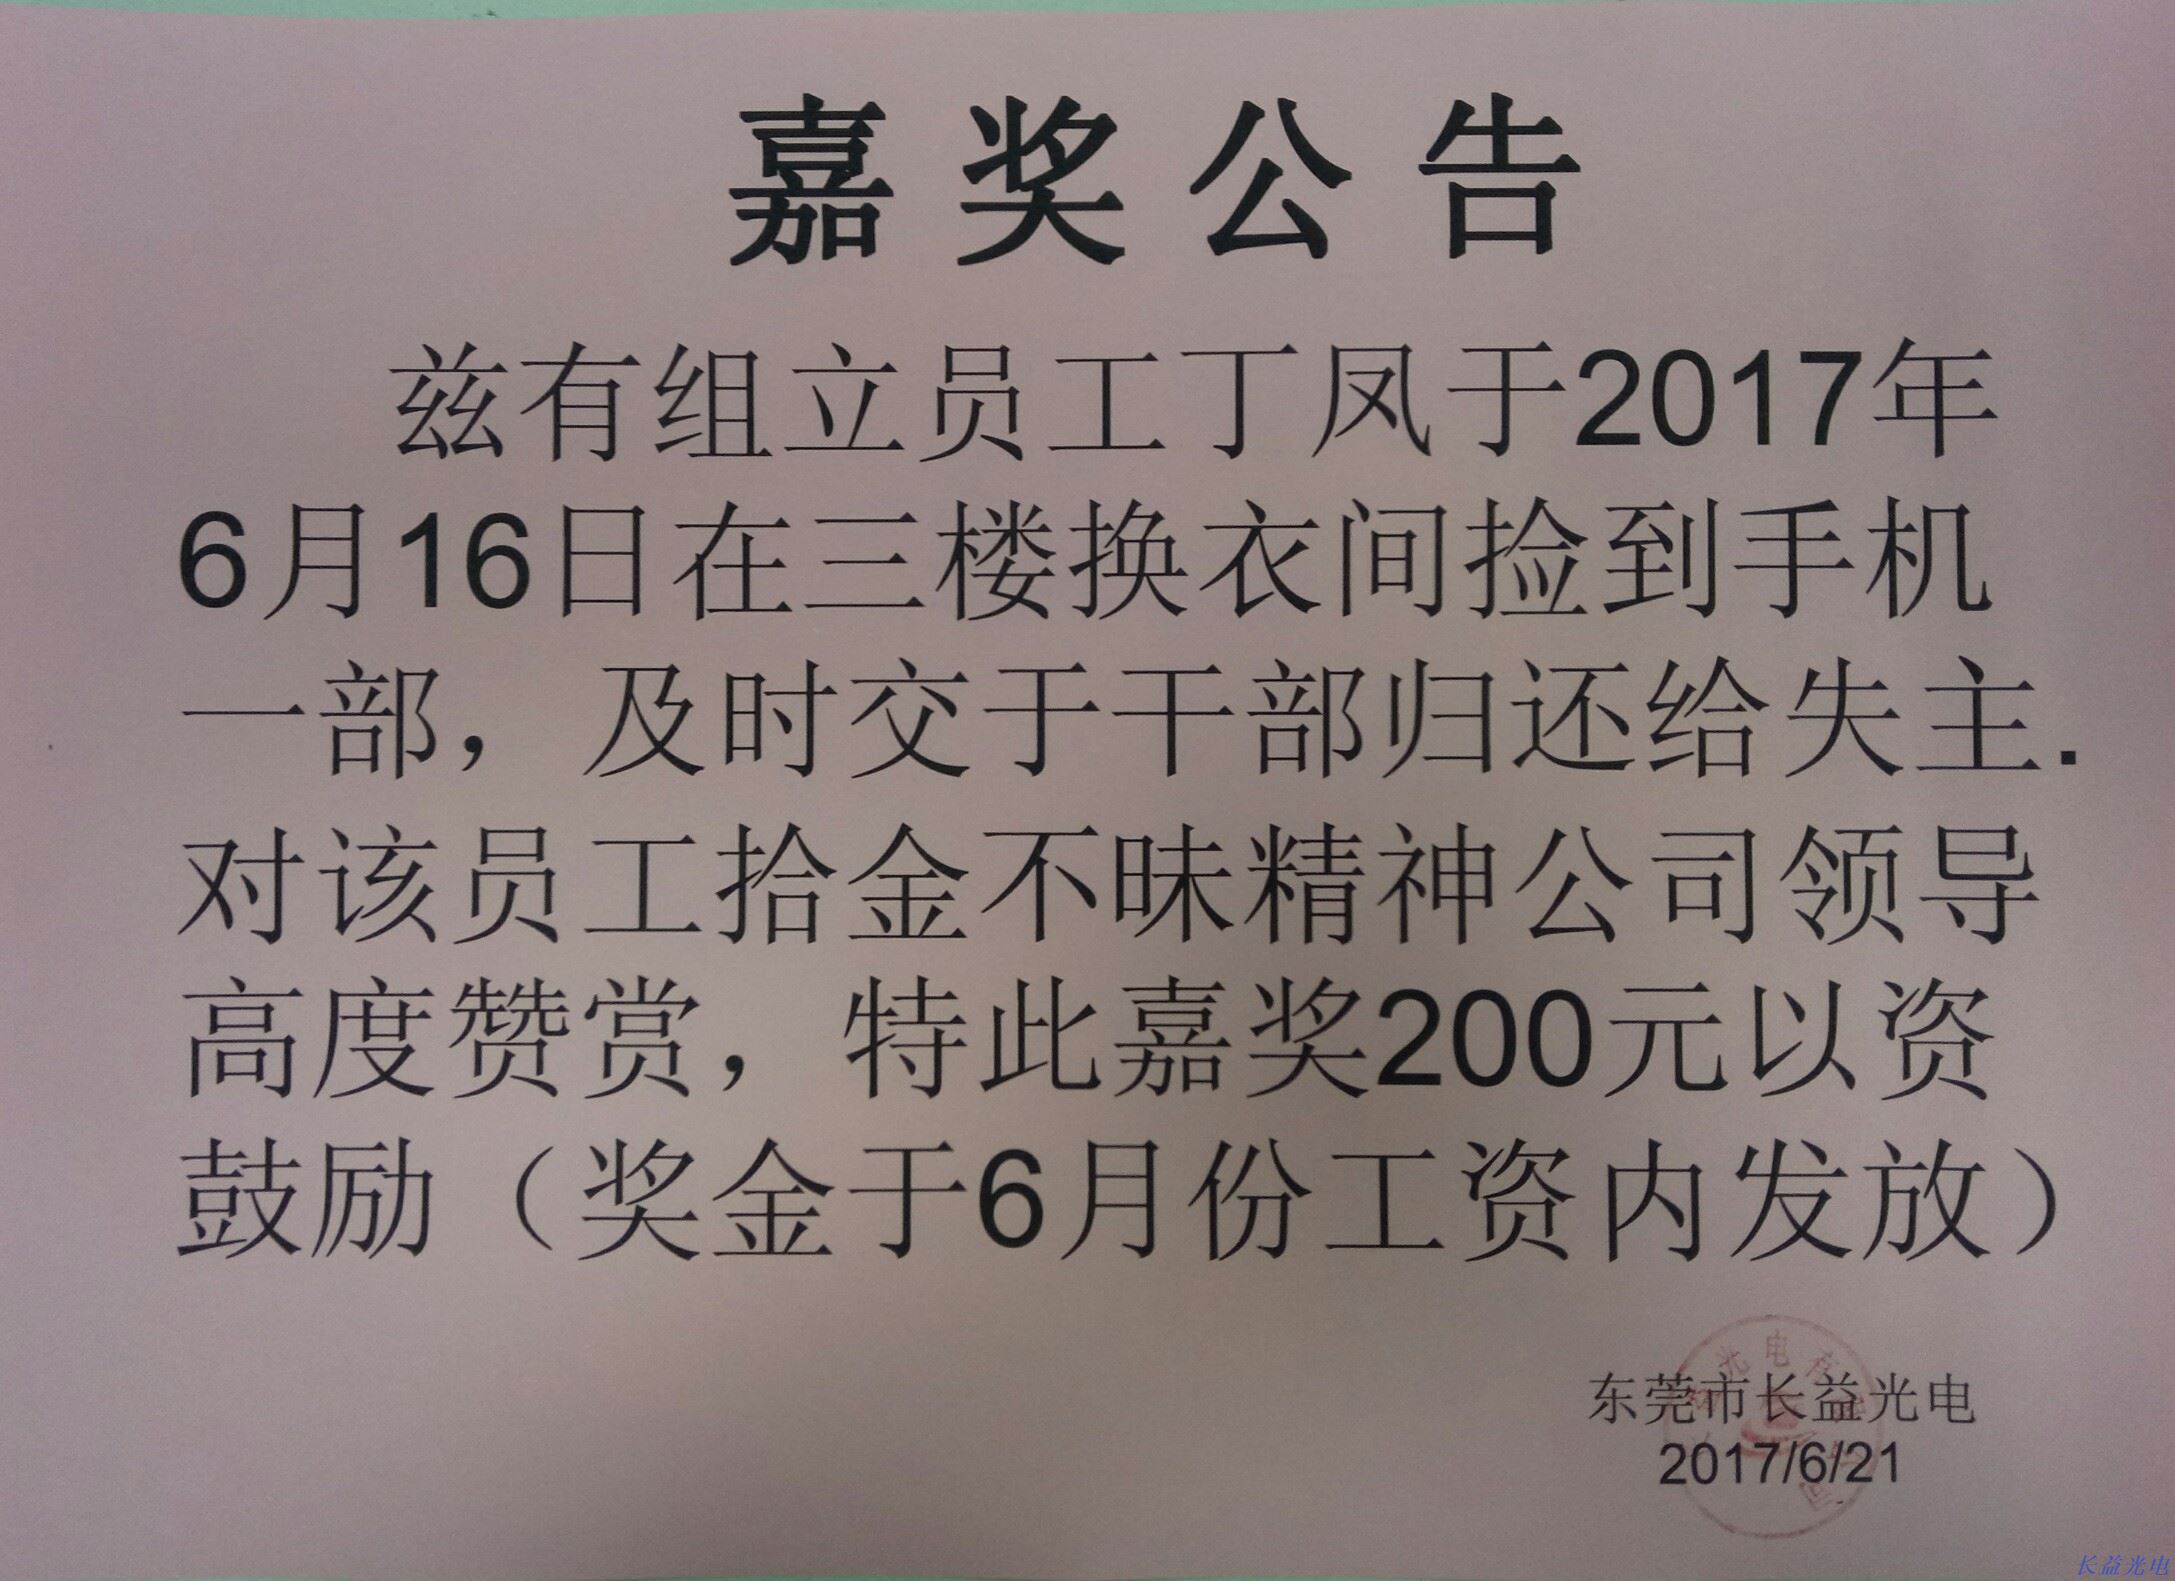 嘉奖公告
兹有组立员工丁凤于2017年
6月16日在三楼换衣间捡到手机
一部，及时交于干部归还给失主.
对该员工拾金不昧精神公司领导
高度赞赏，特此嘉奖200元以资
鼓励（奖金于6月份工资内发放）
光电有
东莞市长益光电
2017/6/21
司
长益光电